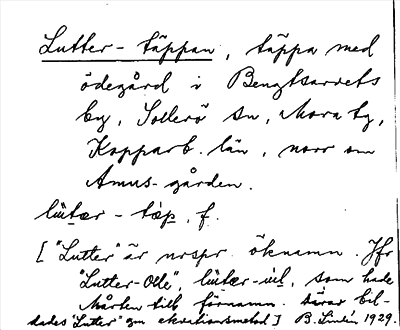 Lutter-täppan, täppa med
ödegård i Bengtsarvets
by, Sollerö sn, Mora tg,
Kopparb. län, norr om
Amus-gården.
f.
["Lutter" är urspr. öknamn. Jfr
"Lutter-Olle", som hade
Mårten till förnamn. Härav bil-
dades "Lutter" gm B. Lindén 1929.